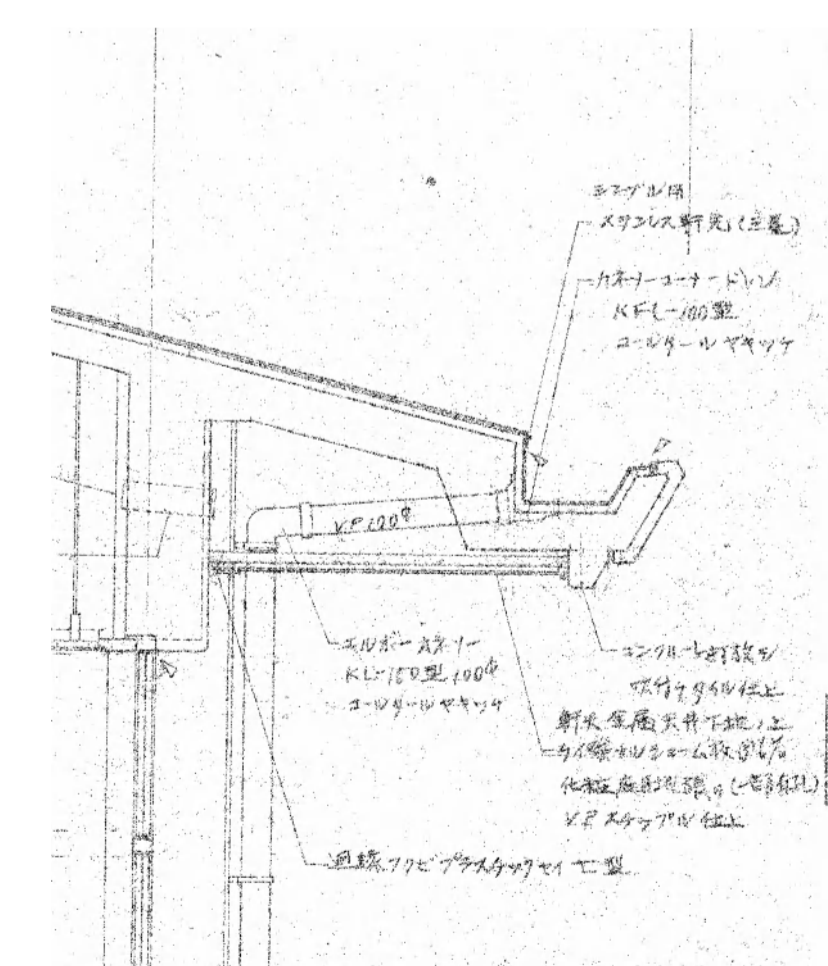 シングル用
ステンレス軒先(主屋)
カネソーコーナードレン
KFL-100型
コールタールヤキツケ
VP100φ
エルボーカネソー
KL-150型 100φ
コールタールヤキツケ
コンクリート打放シ
吹付タイル仕上
軒天 金属天井下地ノ上
化粧 目地張り(一部有孔)
VPスチップル仕上
廻縁 フクビプラスチックセイ